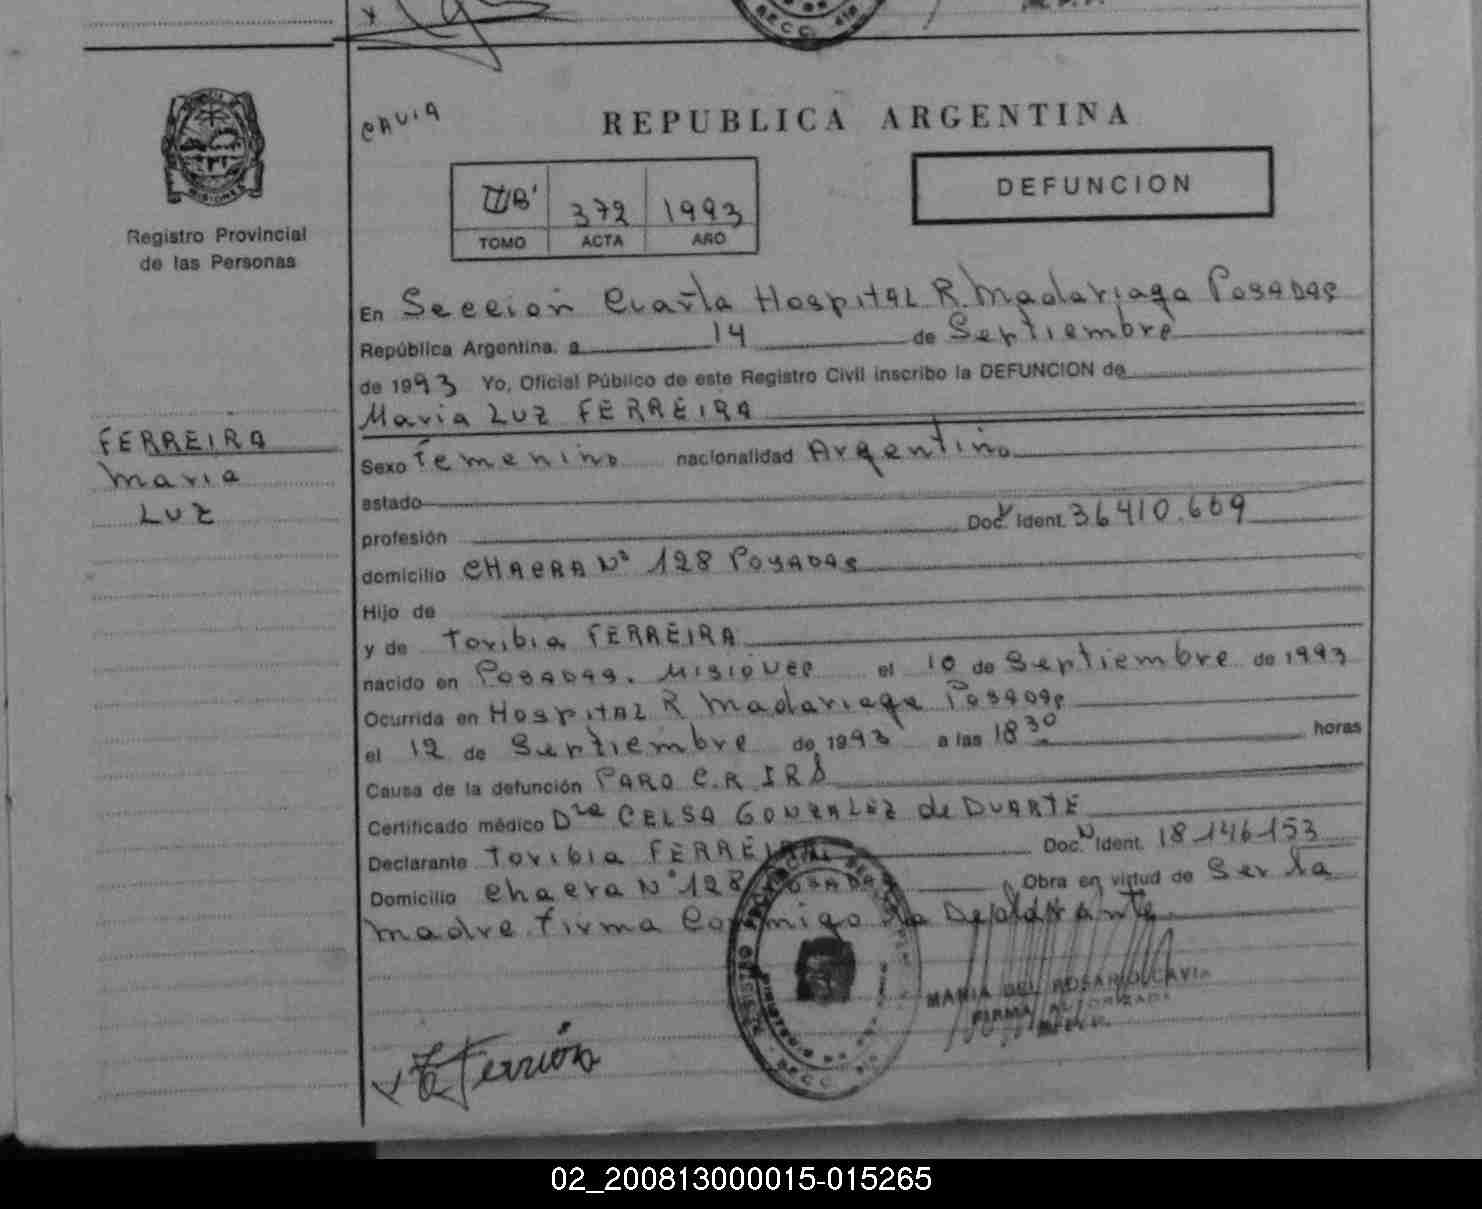 REPUBLICA ARGENTINA
CAVIA
DEFUNCION
372 1993
TOMO ACTA AÑO
MISIONES
Registro Provincial
de las Personas
FERREIRA
Maria
LUZ
En Seccion Cuarta Hospital R. Madariaga Posadas
República Argentina, a 14 de Septiembre
de 1993 Yo, Oficial Público de este Registro Civil inscribo la DEFUNCION de
Maria LUZ FERREIRA
Sexo Femenino nacionalidad Argentino
estado
profesión Doc. Ident. 36410.669
domicilio CHACRA Nº 128 Posadas
Hijo de
y de Toribia FERREIRA
nacido en Posadas. Misiones el 10 de Septiembre de 1993
Ocurrida en Hospital R Madariaga Posadas
el 12 de Septiembre de 1993 a las 18 30 horas
Causa de la defunción PARO C.R.
Certificado médico Dra CELSA GONZALEZ de DUARTE
Declarante Toribia FERREIRA Doc. Ident. 18.146.153
Domicilio Chacra Nº 128 Posadas Obra en virtud de Ser la
Madre firma Conmigo la Declarante
MARIA DEL ROSARIO CAVIA
FIRMA AUTORIZADA
REGISTRO PROVINCIAL
MINISTERIO DE
02_200813000015-015265